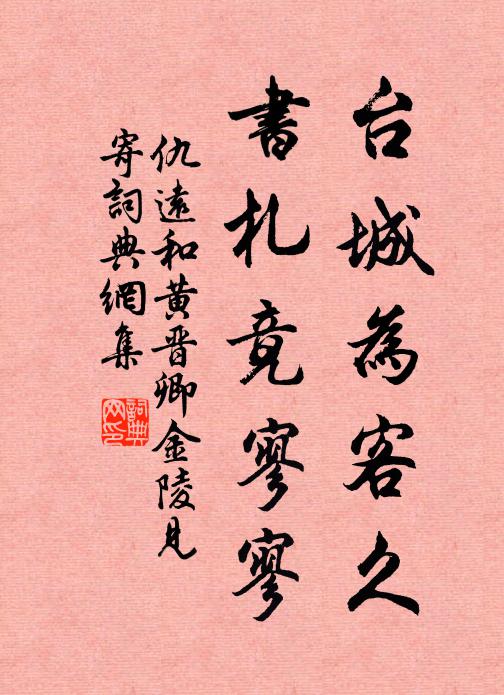 台城為客久
書札竟寥寥
仇遠和黃晉卿金陵見
寄詞典網集
詞典網印